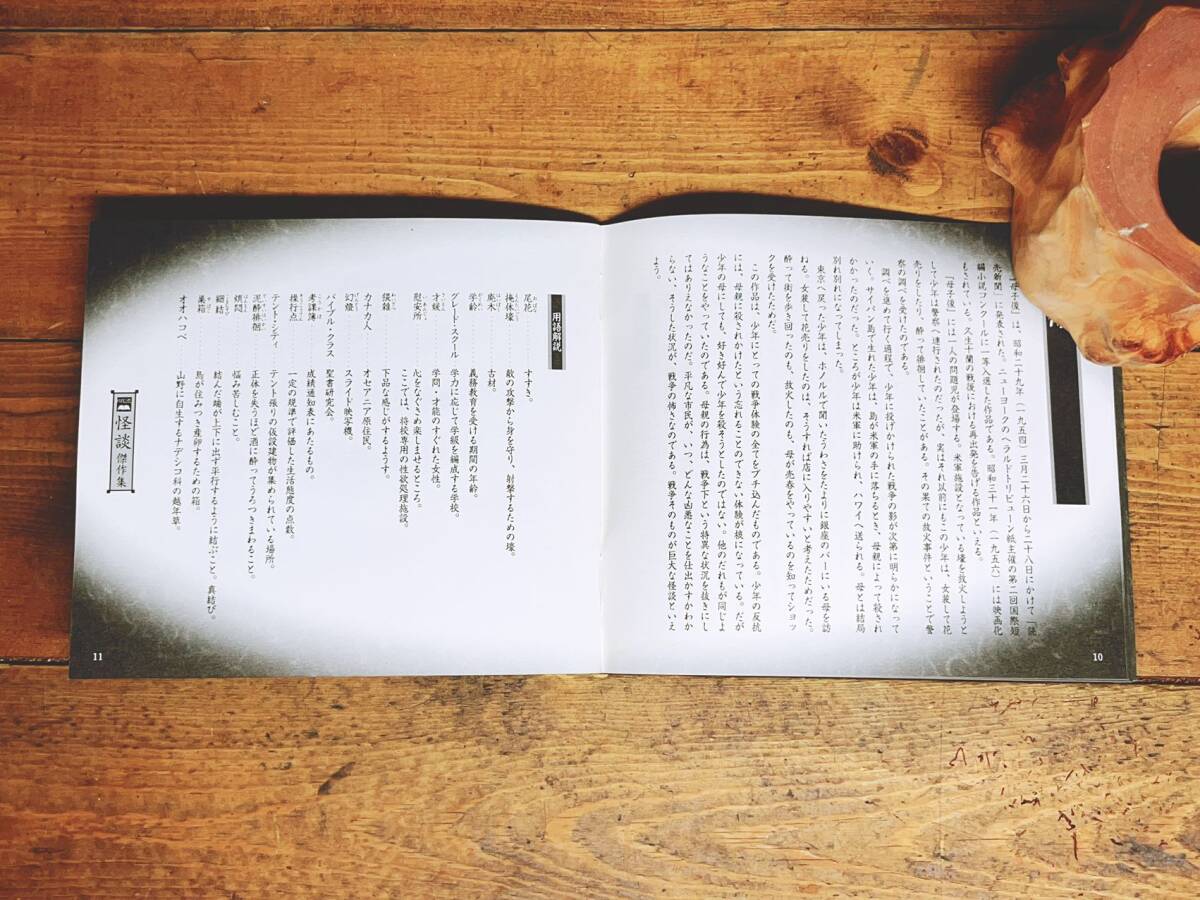 「母子像」は、昭和二十九年（一九五四）三月二十六日から二十八日にかけて「読
売新聞」に発表された。ニューヨークのヘラルドトリビューン紙主催の第二回国際短
編小説コンクールに一等入選した作品である。昭和三十一年（一九五六）には映画化
もされている。久生十蘭の戦後における再出発を告げる作品といえる。
「母子像」には一人の問題児が登場する。米軍施設となっている壕を放火しようと
して少年は警察へ連行されたのだったが、実はそれ以前にもこの少年は、女装して花
売りをしたり、酔って徘徊していたことがある。その果ての放火事件ということで警
察の調べを受けたのである。
調べを進めて行く過程で、少年に投げかけられた戦争の影が次第に明らかになって
いく。サイパン島で生れた少年は、島が米軍の手に落ちるとき、母親によって殺され
かかったのだった。ところが少年は米軍に助けられ、ハワイへ送られる。母とは結局
別れ別れになってしまった。
東京へ戻った少年は、ホノルルで聞いたうわさをたよりに銀座のバーにいる母を訪
ねる。女装して花売りをしたのは、そうすれば店に入りやすいと考えたためだった。
酔って街を歩き回ったのも、放火したのも、母が売春をやっているのを知ってショッ
クを受けたためだ。
この作品は、少年にとっての戦争体験の全てをブチ込んだものである。少年の反抗
には、母親に殺されかけたという忘れることのできない体験が核になっている。だが
少年の母にしても、好き好んで少年を殺そうとしたのではない。他のだれもが同じよ
うなことをやっていたのである。母親の行為は、戦争下という特異な状況を抜きにし
てはありえなかったのだ。平凡な市民が、いつ、どんな凶悪なことを仕出かすかわか
らない、そうした状況が、戦争の怖さなのである。戦争そのものが巨大な怪談といえ
よう。
10
用語解説
尾花…………すすき。
掩体壕…………敵の攻撃から身を守り、射撃するための壕。
廃木…………古材。
学齢…………義務教育を受ける期間の年齢。
グレート・スクール…………学力に応じて学級を編成する学校。
才媛…………学問・才能のすぐれた女性。
慰安所…………心をなぐさめ楽しませるところ。
ここでは、将校専用の性欲処理施設。
猥雑…………下品な感じがするようす。
カナカ人…………オセアニア原住民。
幻燈…………スライド映写機。
バイブル・クラス…………聖書研究会。
考課簿…………成績通知表にあたるもの。
操行点…………一定の規準で評価した生活態度の点数。
テント・シティ…………テント張りの仮設建物が集められている場所。
泥酔徘徊…………正体を失うほど酒に酔ってうろつきまわること。
煩悶…………悩み苦しむこと。
細結…………結んだ端が上下に出ず平行するように結ぶこと。真結び。
巣箱…………鳥が住みつき産卵するための箱。
オオハコベ…………山野に自生するナデシコ科の越年草。
怪談 傑作集
11